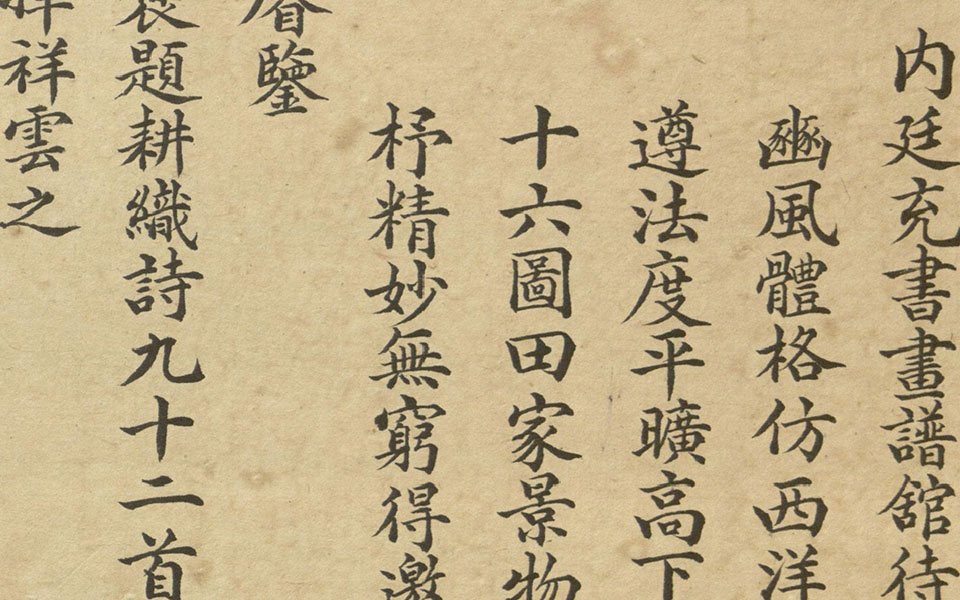 内廷充書畫譜舘待
豳風體格仿西洋
遵法度平曠高下
十六圖田家景物
杼精妙無窮得邀
睿鑒
題耕織詩九十二首
祥雲之